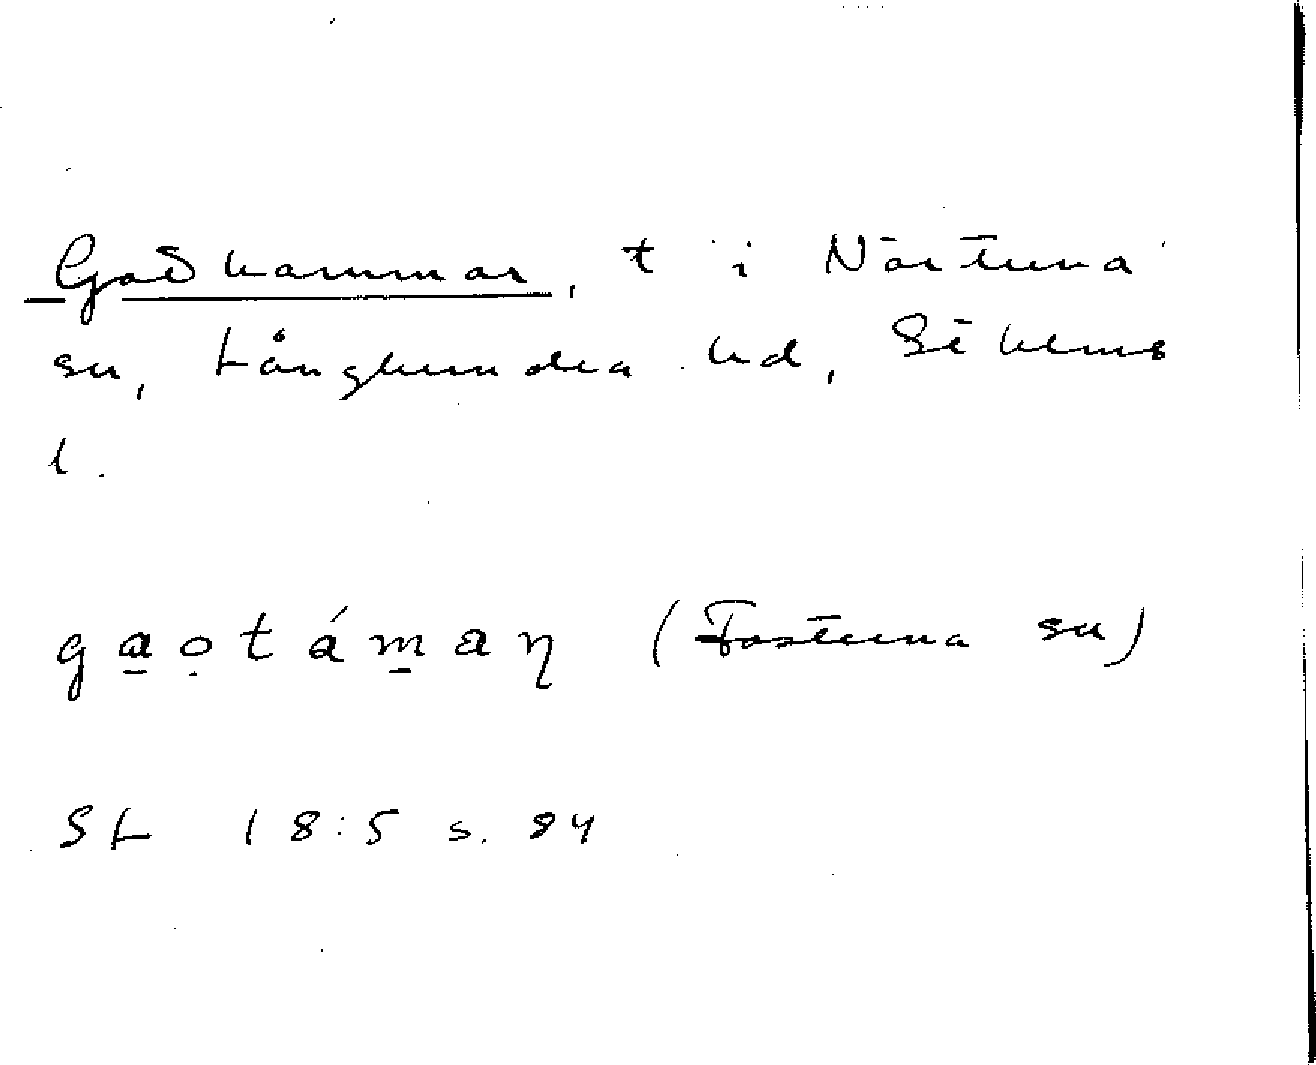 Godhammar, t i Närtuna
sn, Långhundra hd, Sthlms
l.
ga̱ọtám̱aŋ (Fasterna sn)
SL 18:5 s. 84